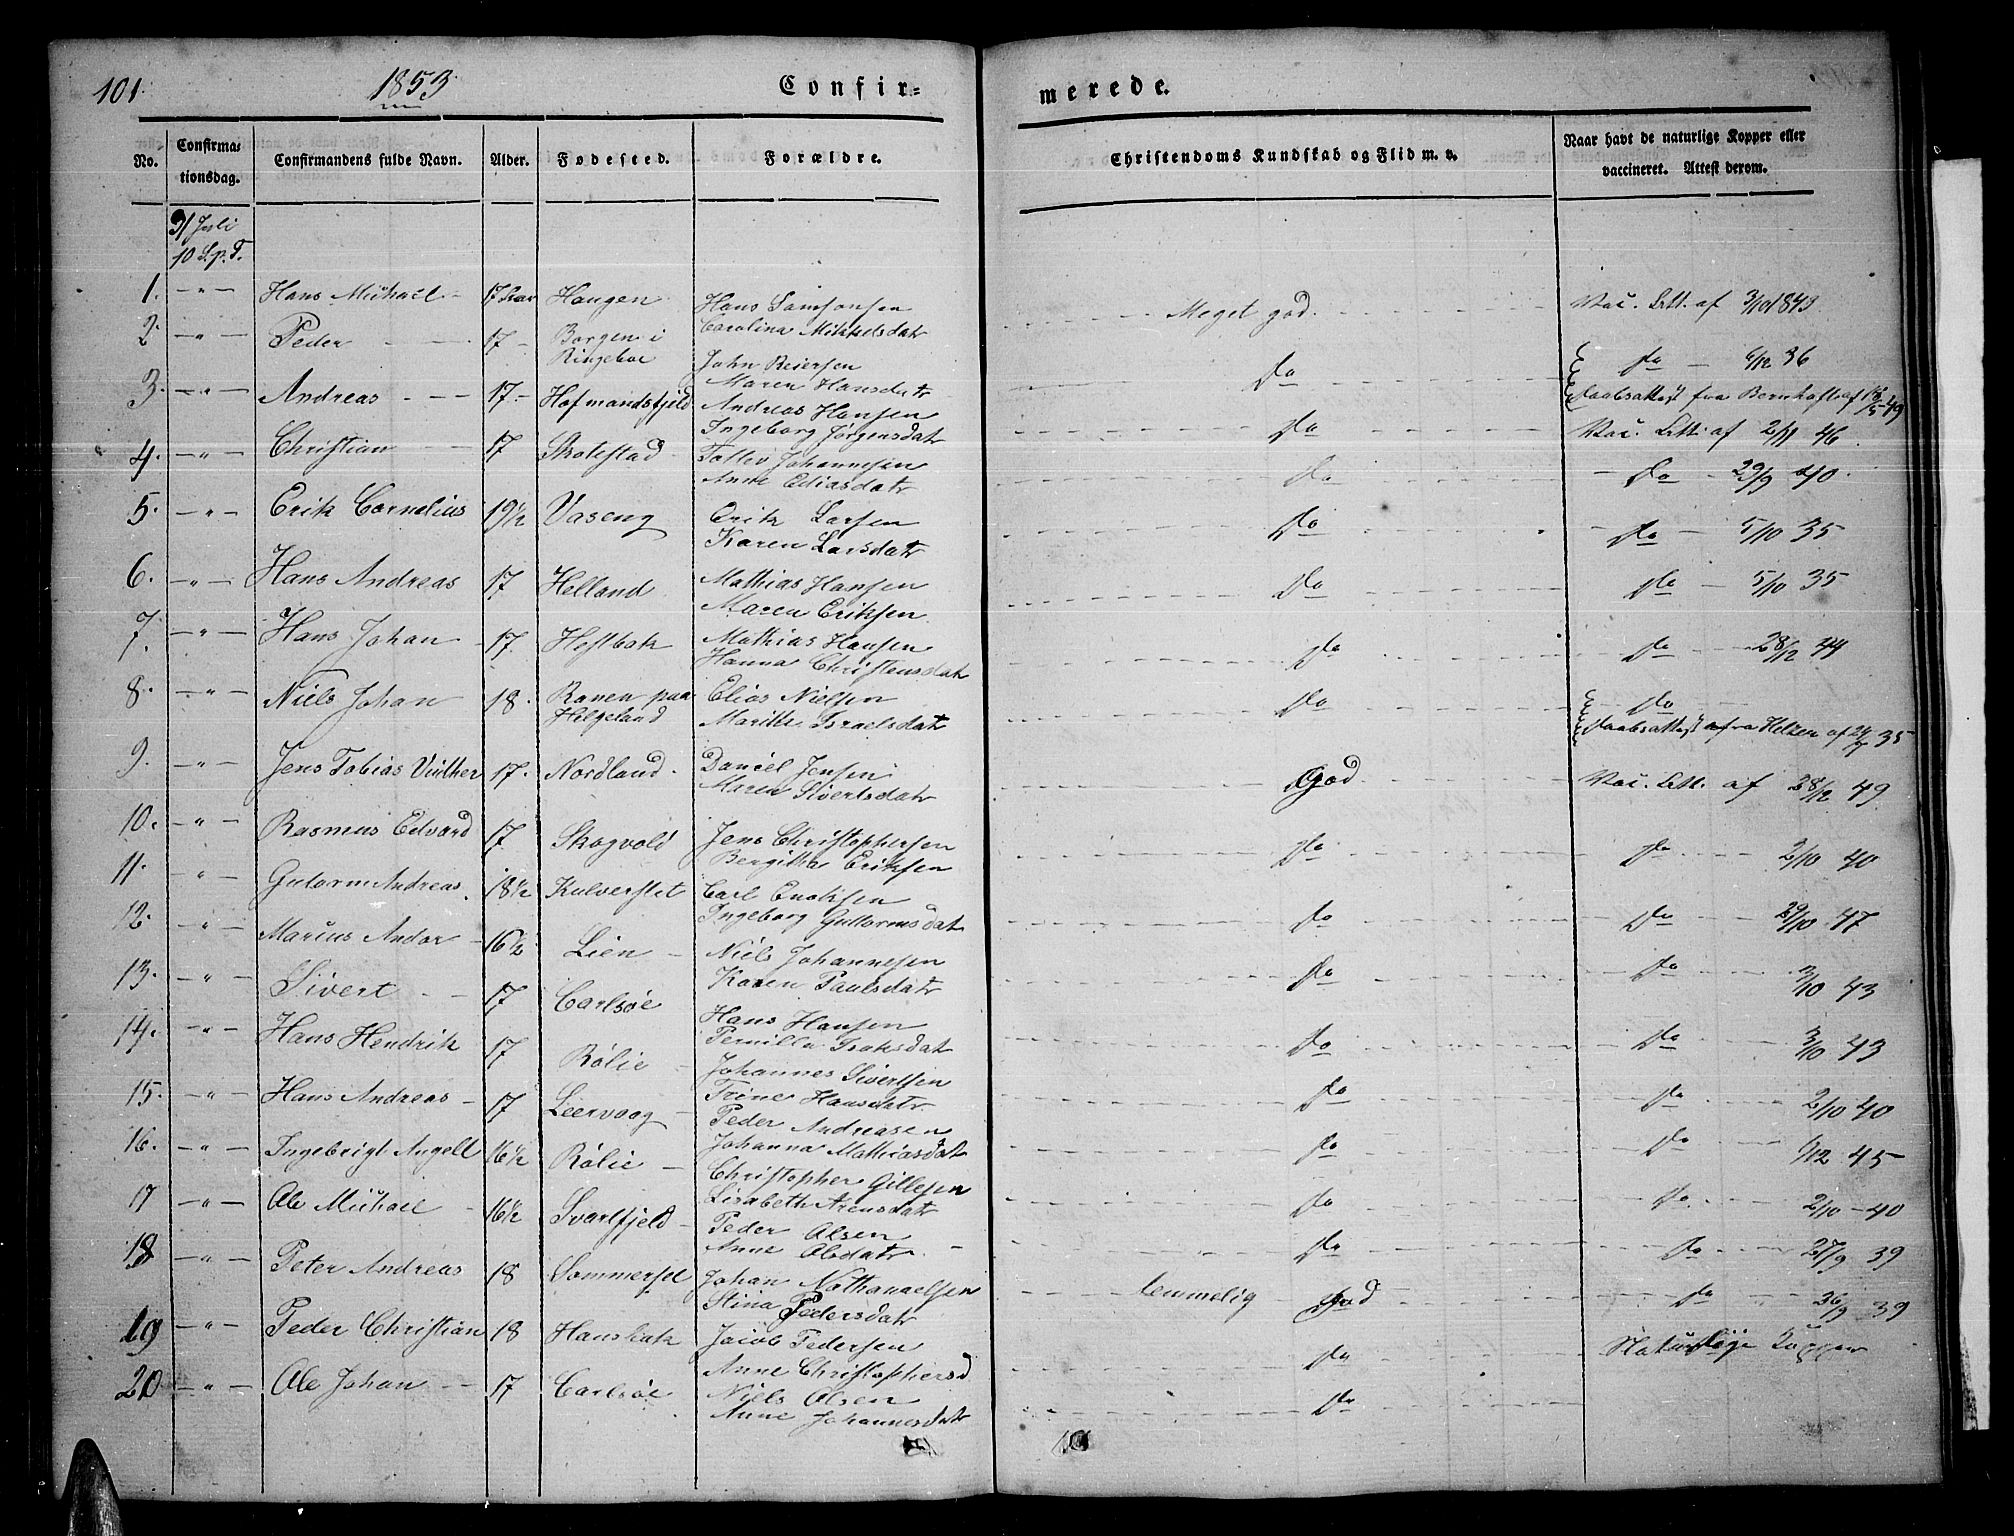 101.
1853
Confir=
merede.
No.
Confirma=
tionsdag.
Confirmandens fulde Navn.
Alder.
Fødested.
Forældre.
Christendoms Kundskab og Flid m. v.
Naar havt de naturlige Kopper eller
vaccineret. Attest derom.
31 Juli
10 S.p.T.
1. — " — Hans Michael — 17 Haugen Hans Samsonsen Meget god. Vac. Att. af 3/10 1843
Carolina Mikkelsdatr
2. — " — Peder 17 — Borgen i Ringeboe John Reiersen Do Do — 6/12 36
Maren Hansdatr Daabsattest fra af 18/5 49
3. — " — Andreas 17 — Hofmandsfjeld Andreas Hansen Do Vac. Att. af 2/11 46
Ingeborg Jørgensdatr
4. — " — Christian 17 Skotestad Tollev Johannesen Do — Do — 29/9 40.
Anne Eliasdatr
5. — " — Erik Cornelius 19½ Vaseng Erik Larsen Do — Do — 5/10 35
Karen Larsdatr
6. — " — Hans Andreas 17 Helland Mathias Hansen Do Do — 5/10 35
Maren Eriksen
7. — " — Hans Johan — 17. Hestbak Mathias Hansen Do Do 28/12 44
Hanna Christensdatr
8. — " — Niels Johan 18. Ranen paa Helgeland Elias Nielsen Do Do
Marith Israelsdatr Daabsattest fra af 24/7 35
9. — " — Jens Tobias Vinther 17. Nordland. Daniel Jensen God. Vac. Att. af 28/12 49
Maren Sivertsdatr
10. — " — Rasmus Edvard 17 Skogvold Jens Christophersen Do Do 2/10 40
Bergitha Eriksen
11. " — Gutorm Andreas. 18½ Kulverstet Carl Enoksen Do Do 29/10 47
Ingeborg Guttormsdatr
12. — " — Marius Andor — 16½ Lien — Niels Johannesen Do Do 3/10 43
Karen Paulsdatr
13. — " — Sivert 17 Carlsøe Hans Hansen Do Do 3/10 43
Pernilla Isaksdatr
14. — " — Hans Hendrik 17 Rølie — Johannes Sivertsen Do Do 2/10 40
Trine Hansdatr
15. — " — Hans Andreas — 17 Leervaag — Peder Andreasen Do Do 6/12 45
Johanna Mathiasdatr
16. — " — Ingebrigt Angell 16½ Rølie — Christopher Gillesen Do Do 2/10 — 40
Lisabeth Arensdatr
17 — " — Ole Michael 16½ Svartfjeld — Peder Olsen Do Do 27/9 39
Anne Olsdatr. —
18 — " — Peter Andreas 18 Sommersel Johan Nathanaelsen temmelig God Do 26/9 39
Stina Pedersdatr
19 — " — Peder Christian 18 Hanskak Jacob Pedersen Do Naturlige Kopper
Anne Christophersd
20 — " — Ole Johan — 17 Carlsøe Niels Olsen Do
Anne Johannesdatr